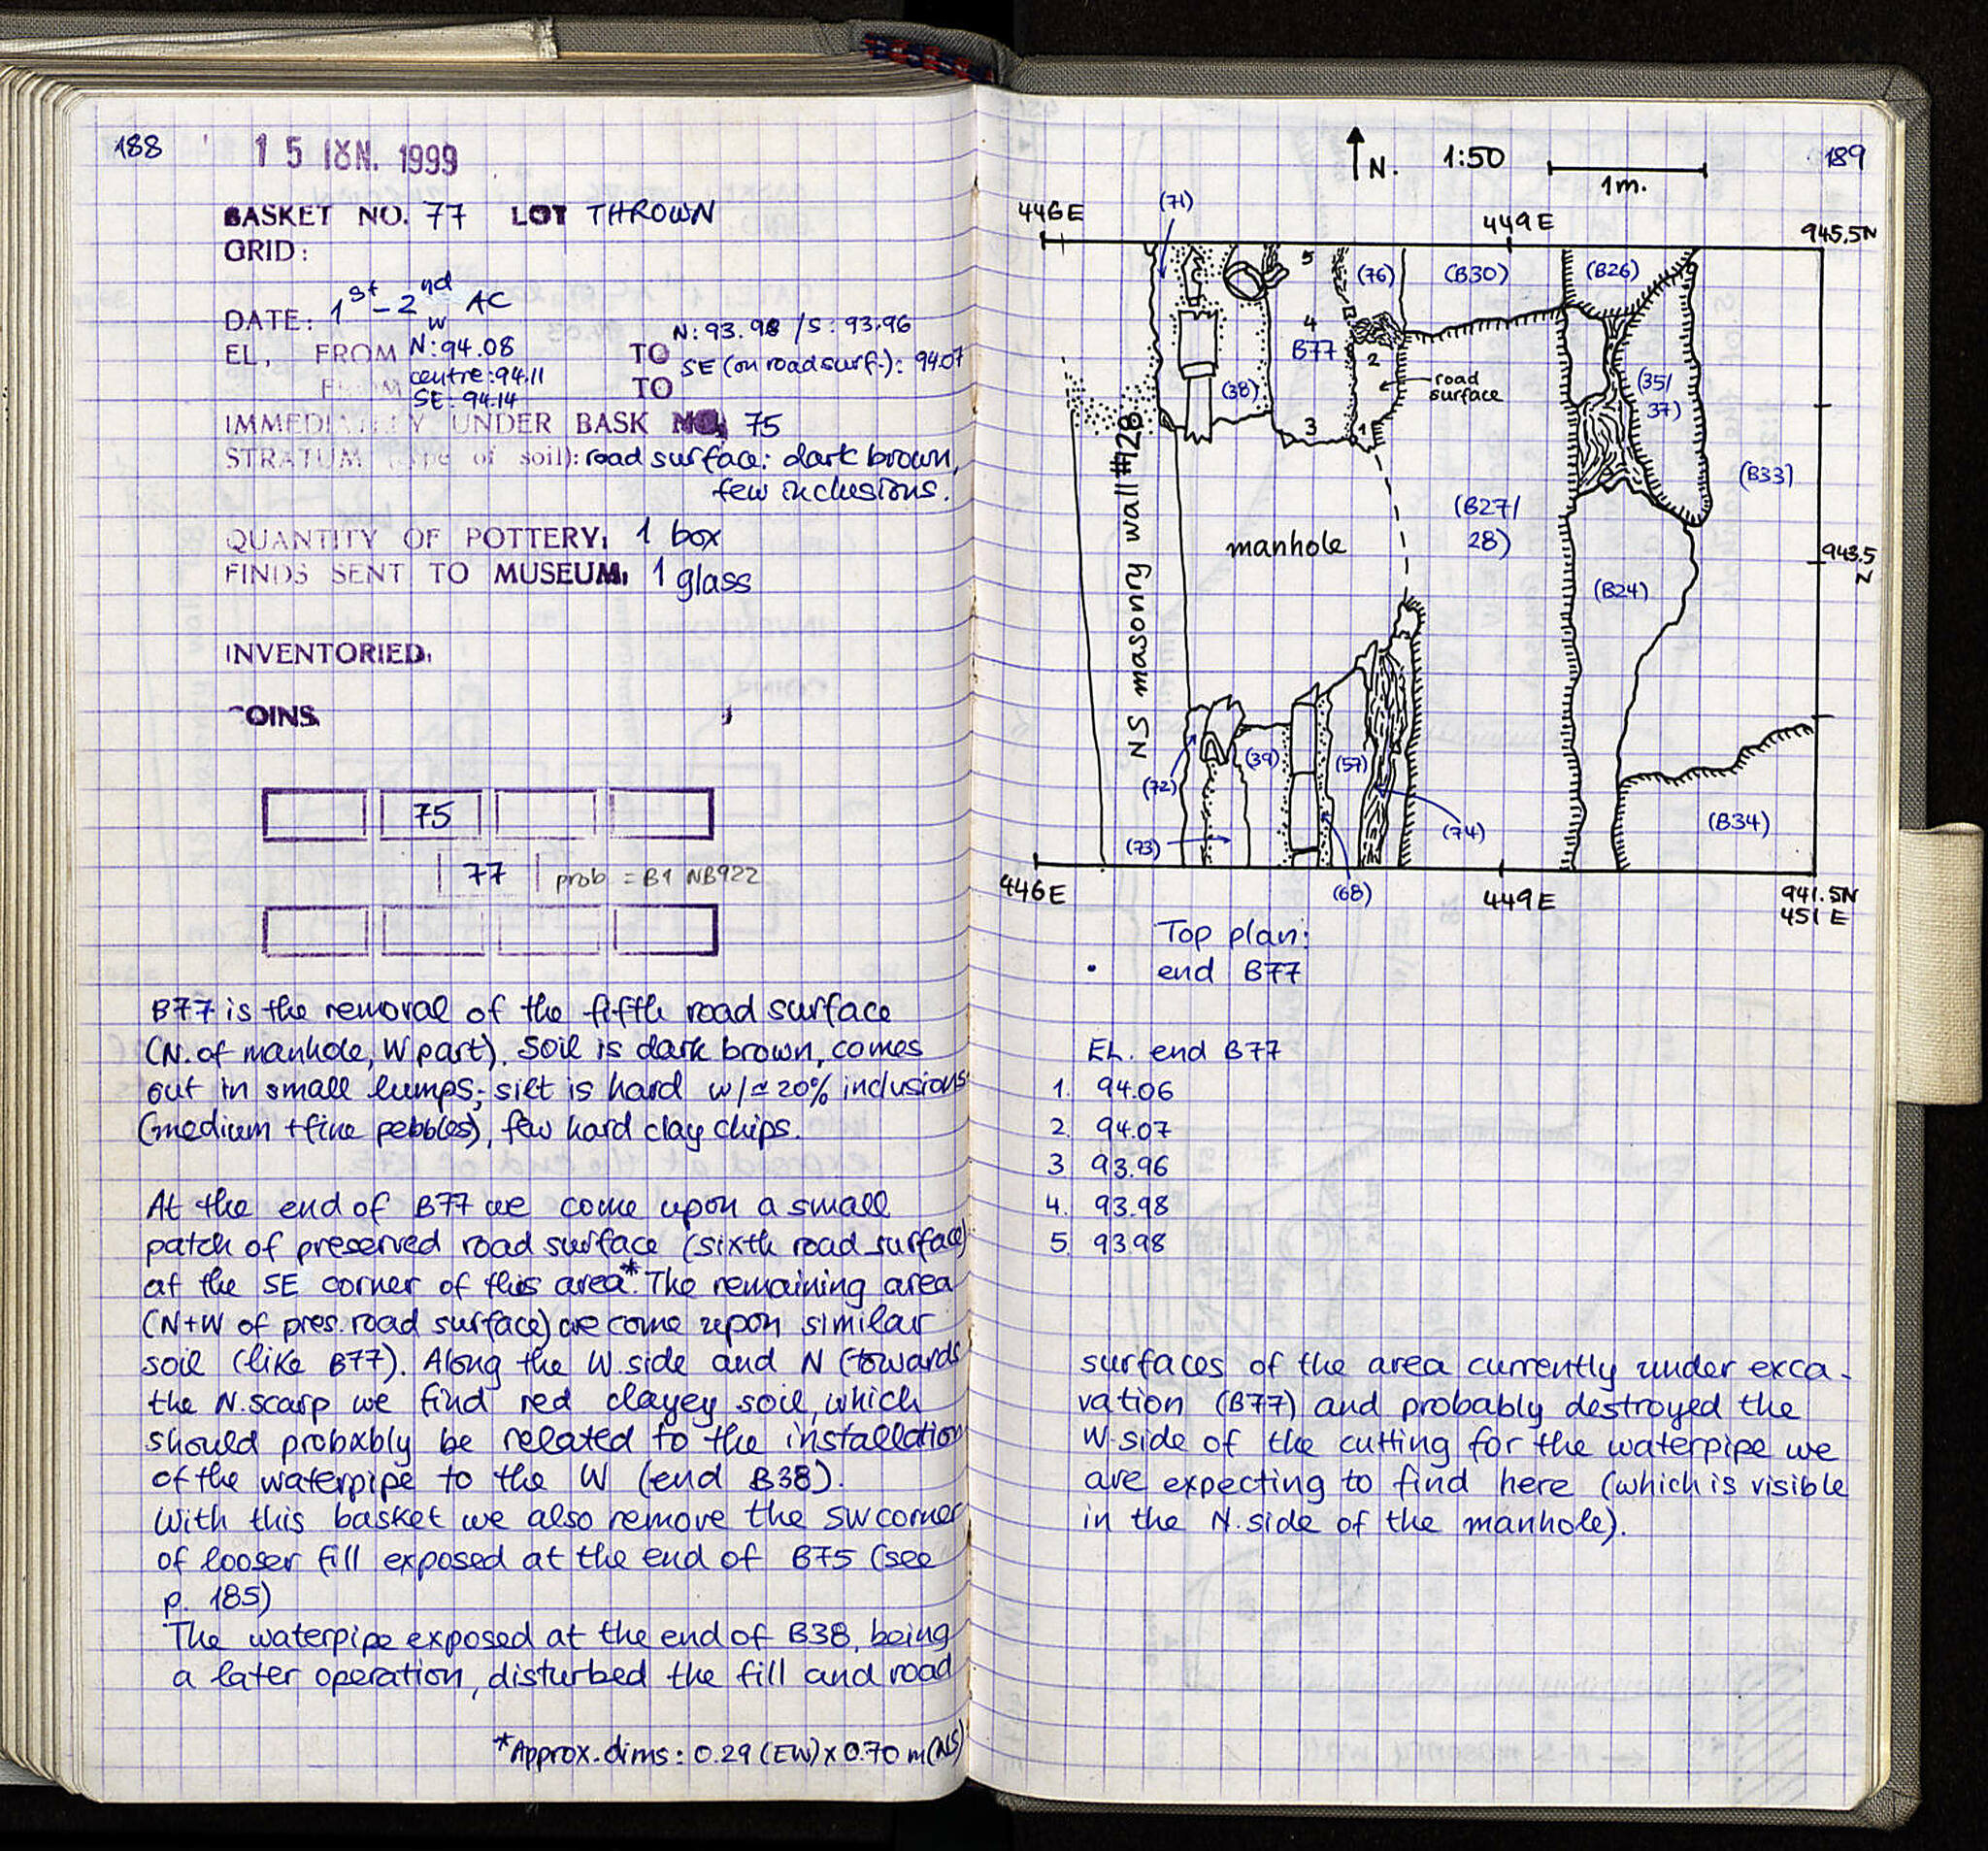 188
15 ΙΟΥΝ. 1999
BASKET NO. 77 LOT THROWN
GRID:
DATE: 1st-2nd AC
W
EL, FROM N:94.08 TO N:93.98 / S:93.96
centre:94.11 SE (on road surf.): 94.07
FROM SE:94.14 TO
IMMEDIATELY UNDER BASK NO, 75
STRATUM (type of soil): road surface: dark brown,
few inclusions.
QUANTITY OF POTTERY: 1 box
FINDS SENT TO MUSEUM: 1 glass
INVENTORIED:
COINS
75
77 prob = B1 NB922
B77 is the removal of the fifth road surface
(N. of manhole, W part). Soil is dark brown, comes
out in small lumps; silt is hard w/≃20% inclusions
(medium + fine pebbles), few hard clay chips.
At the end of B77 we come upon a small
patch of preserved road surface (sixth road surface)
at the SE corner of this area*. The remaining area
(N+W of pres. road surface) we come upon similar
soil (like B77). Along the W. side and N (towards
the N. scarp we find red clayey soil, which
should probably be related to the installation
of the waterpipe to the W (end B38).
With this basket we also remove the SW corner
of looser fill exposed at the end of B75 (see
p. 185)
The waterpipe exposed at the end of B38, being
a later operation, disturbed the fill and road
*Approx. dims: 0.29 (EW) x 0.70 m (NS)
N. 1:50 1m. 189
446E (71) 449E 945.5N
5 (76) (B30) (B26)
4
B77 2
(38) road
surface
(35/
37)
3 1
(B33)
NS masonry wall #128
manhole
(B27/
28)
943.5
N
(B24)
(72) (39) (57)
(73) (74) (B34)
446E (68) 449E 941.5N
451E
Top plan:
end B77
EL. end B77
1. 94.06
2. 94.07
3. 93.96
4. 93.98
5. 93.98
surfaces of the area currently under exca-
vation (B77) and probably destroyed the
W. side of the cutting for the waterpipe we
are expecting to find here (which is visible
in the N. side of the manhole).